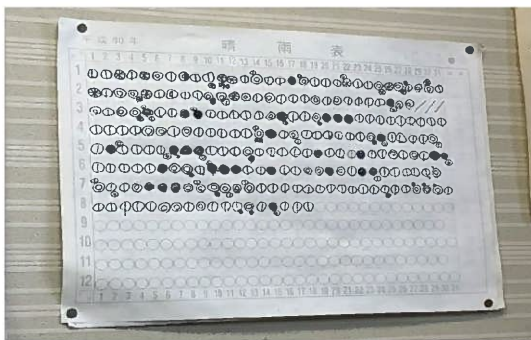 晴雨表
1 2 3 4 5 6 7 8 9 10 11 12 13 14 15 16 17 18 19 20 21 22 23 24 25 26 27 28 29 30 31
1
2
3
4
5
6
7
8
9
10
11
12
1 2 3 4 5 6 7 8 9 10 11 12 13 14 15 16 17 18 19 20 21 22 23 24 25 26 27 28 29 30 31